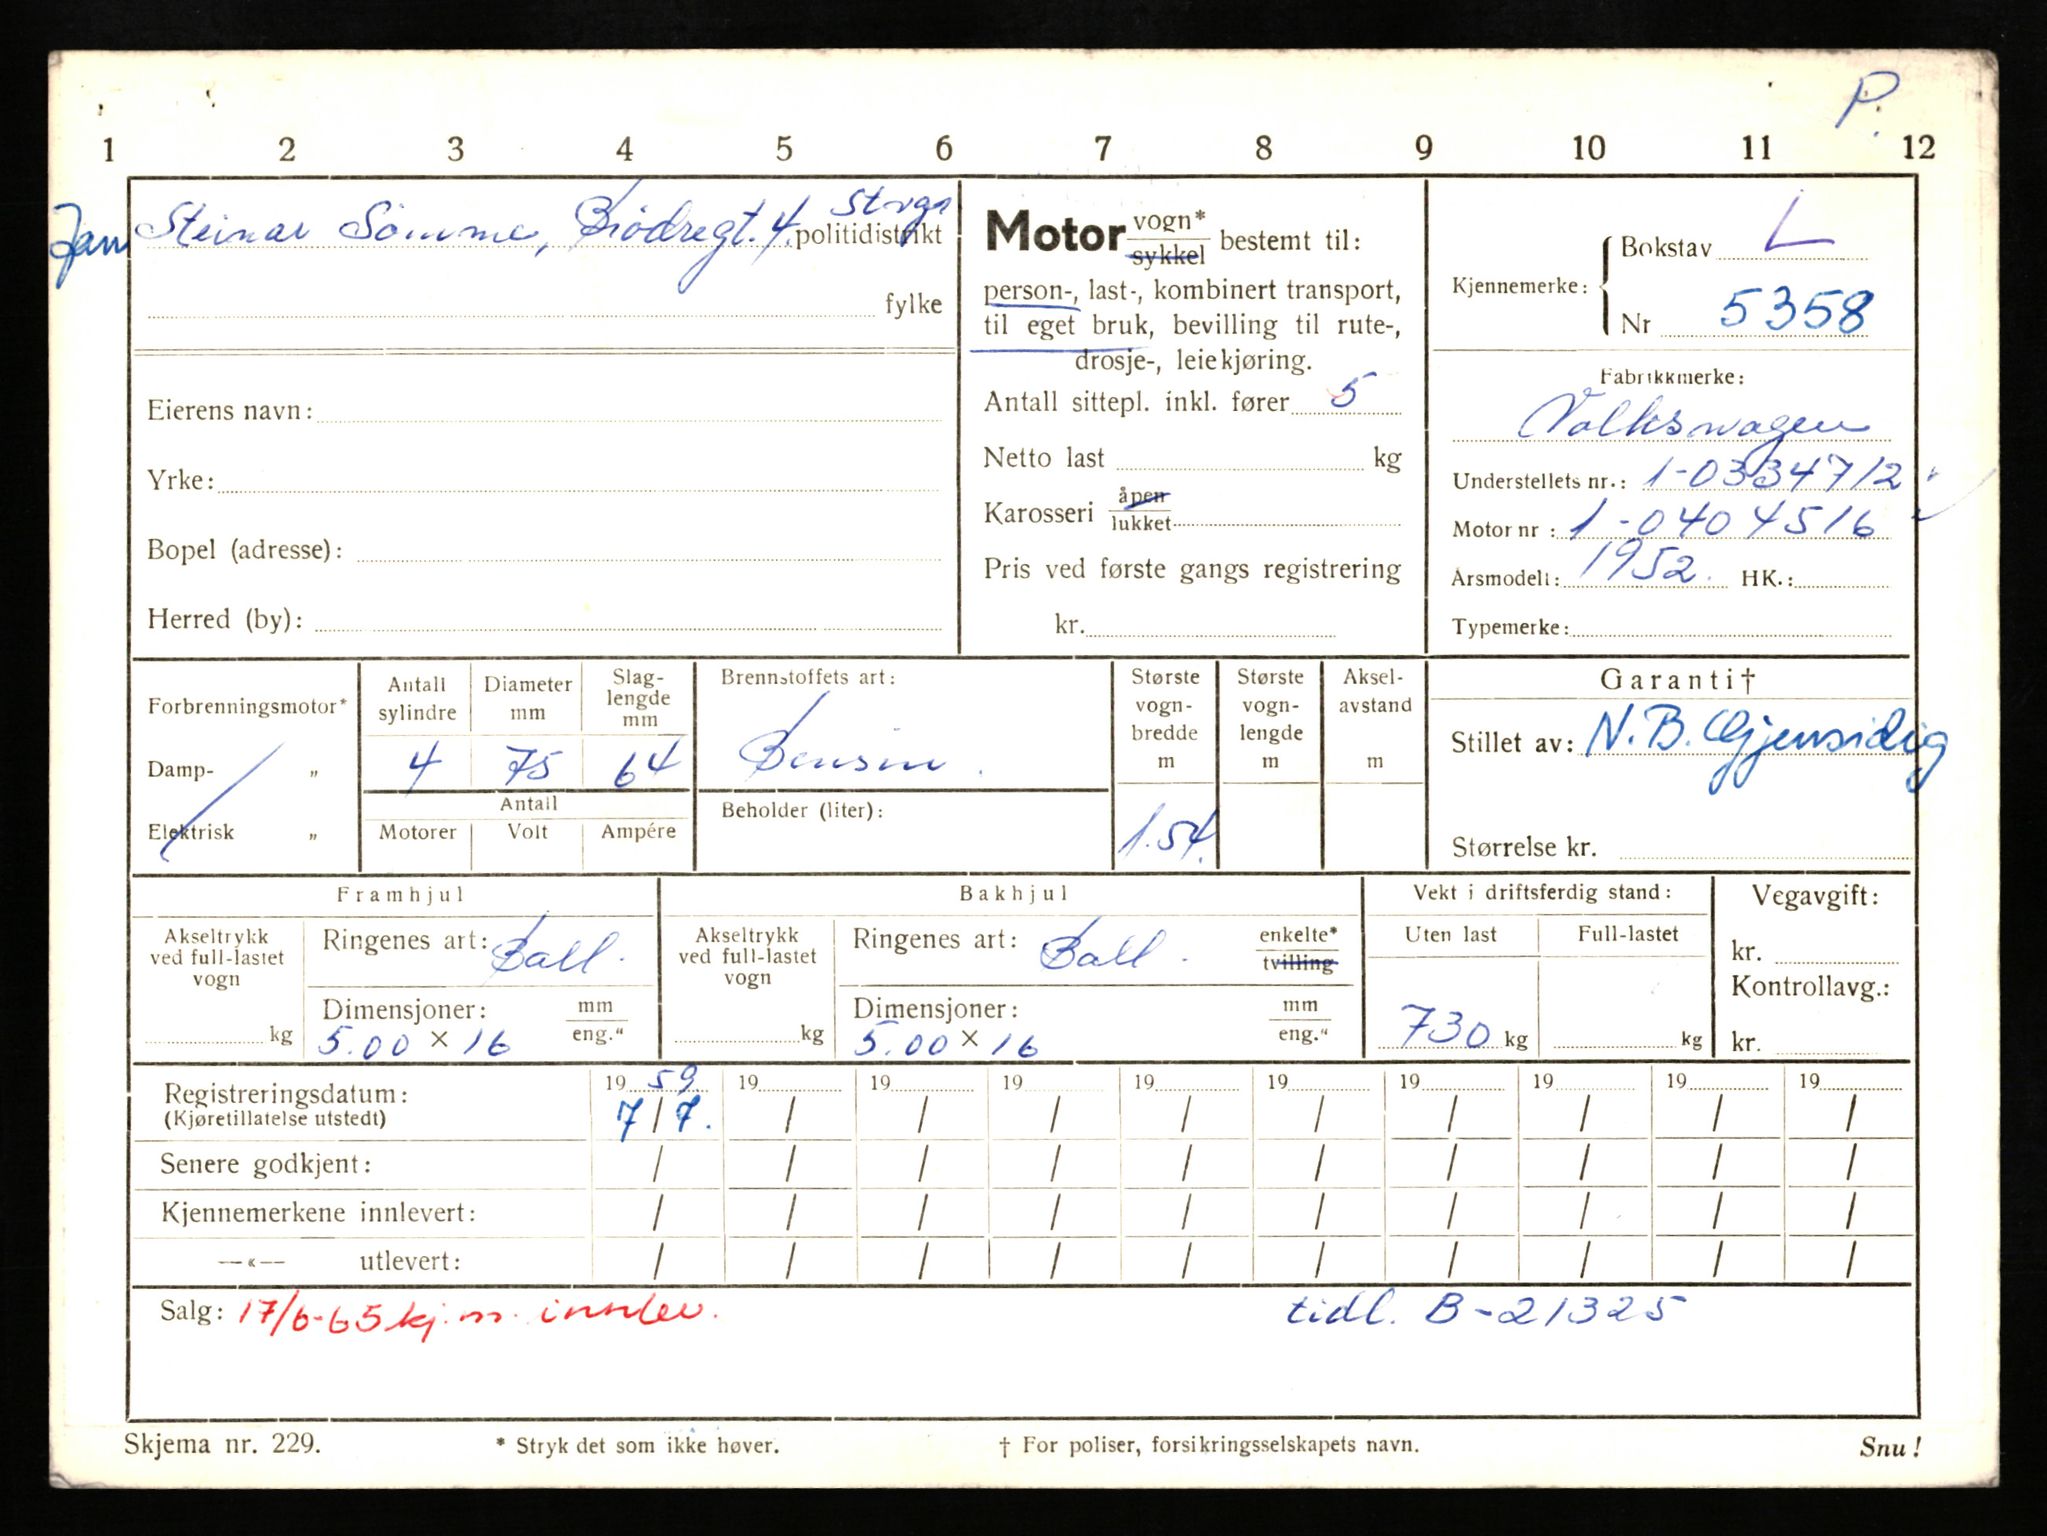 P.
1 2 3 4 5 6 7 8 9 10 11 12
Jan Steinar Sömme, Brödregt. 4. Stvgr politidistrikt
fylke
Eierens navn:
Yrke:
Bopel (adresse):
Herred (by):
Motor vogn* sykkel bestemt til:
person-, last-, kombinert transport,
til eget bruk, bevilling til rute-,
drosje-, leiekjøring.
Antall sittepl. inkl. fører 5
Netto last kg
Karosseri åpen lukket
Pris ved første gangs registrering
kr.
Kjennemerke: Bokstav L
Nr 5358
Fabrikkmerke:
Volkswagen
Understellets nr.: 1-0334712
Motor nr: 1-0404516
Årsmodell: 1952. HK.:
Typemerke:
Forbrenningsmotor*
Damp- „
Elektrisk „
Antall sylindre 4
Diameter mm 75
Slaglengde mm 64
Antall
Motorer Volt Ampére
Brennstoffets art:
Bensin.
Beholder (liter):
Største vognbredde m 1.54.
Største vognlengde m
Akselavstand m
Garanti†
Stillet av: N.B. Gjensidig
Størrelse kr.
Framhjul
Akseltrykk ved full-lastet vogn kg
Ringenes art: Ball.
Dimensjoner: mm eng."
5.00 × 16
Bakhjul
Akseltrykk ved full-lastet vogn kg
Ringenes art: Ball. enkelte* tvilling
Dimensjoner: mm eng."
5.00 × 16
Vekt i driftsferdig stand:
Uten last Full-lastet
730 kg kg
Vegavgift:
kr.
Kontrollavg.:
kr.
Registreringsdatum: 19 59 19 19 19 19 19 19 19 19 19
(Kjøretillatelse utstedt) 7/7. / / / / / / / / /
Senere godkjent: / / / / / / / / / /
Kjennemerkene innlevert: / / / / / / / / / /
—«— utlevert: / / / / / / / / / /
Salg: 17/6-65 kj.m. innlev. tidl. B-21325
Skjema nr. 229. * Stryk det som ikke høver. † For poliser, forsikringsselskapets navn. Snu!